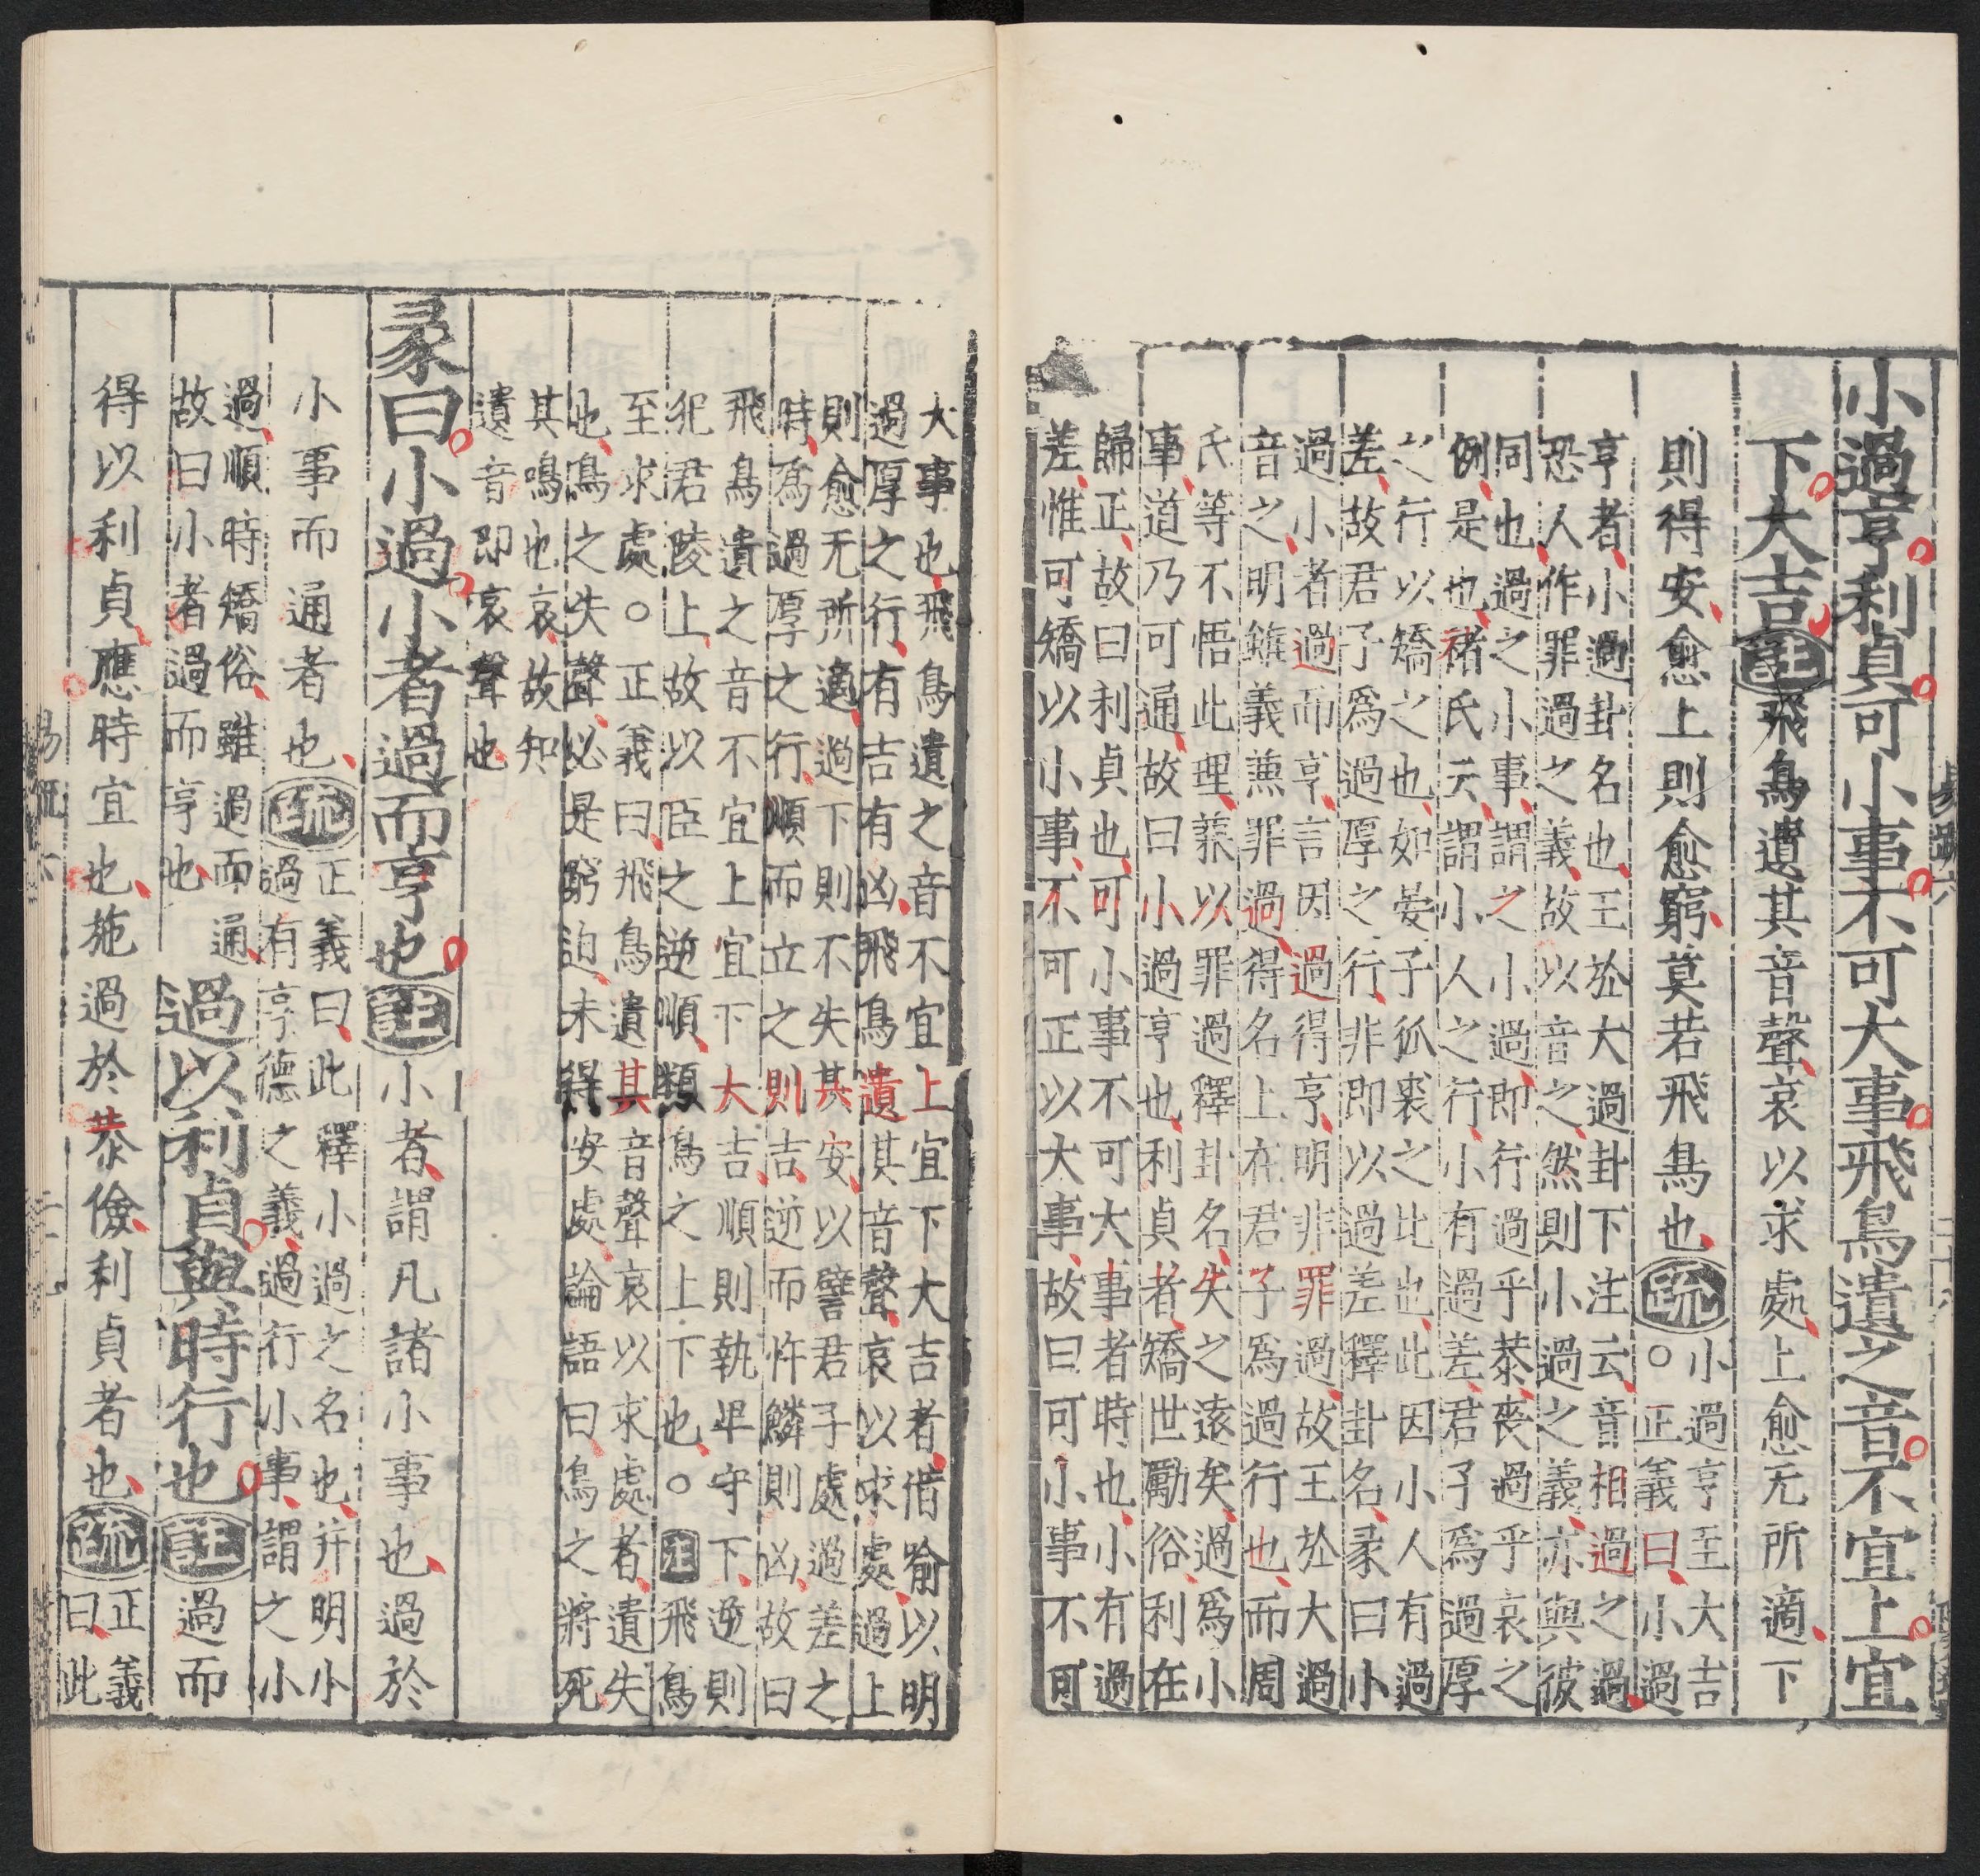 小過亨利貞可小事不可大事飛鳥遺之音不宜上宜
下大吉註飛鳥遺其音聲哀以求處上愈无所適下
則得安愈上則愈窮莫若飛鳥也疏小過亨至大吉
○正義曰小過
亨者小過卦名也王於大過卦下注云音相過之過
恐人作罪過之義故以音之然則小過之義亦與彼
同也過之小事謂之小過即行過乎恭喪過乎哀之
例是也褚氏云謂小人之行小有過差君子爲過厚
之行以矯之也如晏子狐裘之比也此因小人有過
差故君子爲過厚之行非即以過差釋卦名彖曰小
過小者過而亨言因過得亨明非罪過故王於大過
音之明雖義兼罪過得名上在君子爲過行也而周
氏等不悟此理兼以罪過釋卦名失之遠矣過爲小
事道乃可通故曰小過亨也利貞者矯世勵俗利在
歸正故曰利貞也可小事不可大事者時也小有過
差惟可矯以小事不可正以大事故曰可小事不可
大事也飛鳥遺之音不宜上宜下大吉者借喻以明
過厚之行有吉有凶飛鳥遺其音聲哀以求處過上
則愈无所適過下則不失其安以譬君子處過差之
時爲過厚之行順而立之則吉逆而忤鱗則凶故曰
飛鳥遺之音不宜上宜下大吉順則執卑守下逆則
犯君陵上故以臣之逆順類鳥之上下也○注飛鳥
至求處○正義曰飛鳥遺其音聲哀以求處者遺失
也鳥之失聲必是窮迫未得安處論語曰鳥之將死
其鳴也哀故知
遺音即哀聲也
彖曰小過小者過而亨也註小者謂凡諸小事也過於
小事而通者也疏正義曰此釋小過之名也并明小
過有亨德之義過行小事謂之小
過順時矯俗雖過而通
故曰小者過而亨也
過以利貞與時行也註過而
得以利貞應時宜也施過於恭儉利貞者也疏正義
曰此